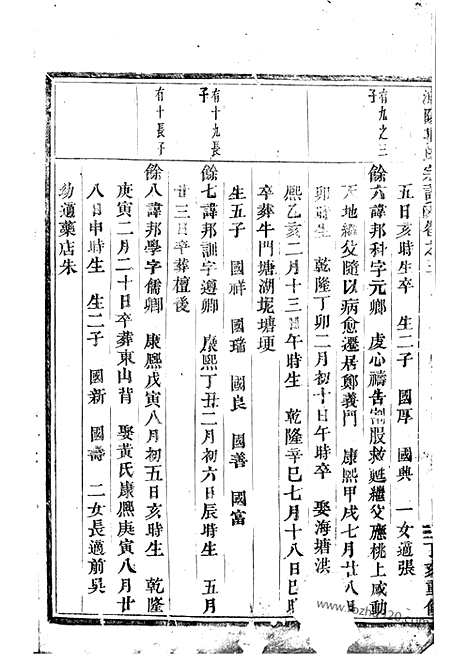 宗譜卷之三
五日亥時生卒 生二子 國厚 國典 一女適張
有九之三子
餘六諱邦科字元卿 虔心禱告割股救甦繼父應桃上感動
天地繼父隨以病愈遷居鄭義門 康熙甲戌七月廿八日
卯時生 乾隆丁卯二月初十日午時卒 娶海塘洪
熙乙亥二月十三日午時生 乾隆辛巳七月十八日巳時
卒葬牛門塘湖坭塘埂
生五子 國祥 國瑞 國良 國善 國富
有十九長子
餘七諱邦訓字遵卿 康熙丁丑二月初六日辰時生 五月
廿三日卒葬檀後
有十長子
餘八諱邦學字儒卿 康熙戊寅八月初五日亥時生 乾隆
庚寅二月二十日卒葬東山背 娶黃氏康熙庚寅八月廿
八日申時生 生二子 國新 國壽 二女長適前吳
幼適藥店朱
丁亥重修